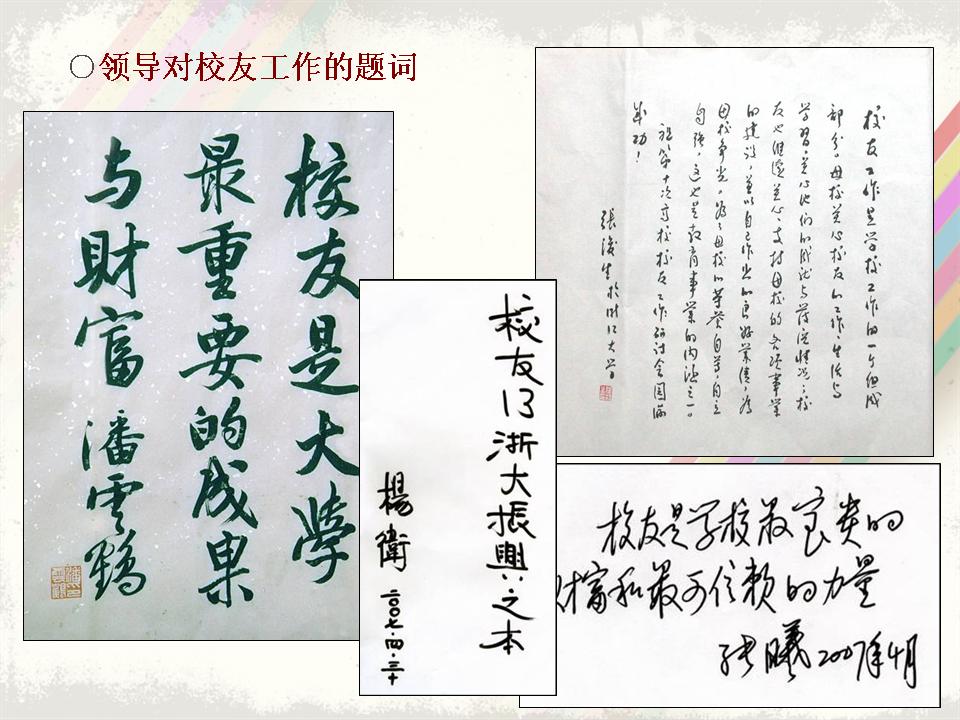 ○领导对校友工作的题词
校友是大學
最重要的成果
与財富 潘雲鶴
校友乃浙大振興之本
楊衛
二〇〇七·四·三十
校友工作是学校工作的一个组成
部分。母校关心校友的工作、生活与
学习，关心他们的成就与发展情况；校
友也很关心、支持母校的各项事业
的建设，并以自己作出的良好业绩，为
母校争光。为了母校的荣誉自尊、自立
自强，这也是教育事业的内涵之一。
祝第十次高校校友工作研讨会圆满
成功！
張浚生於浙江大学
校友是学校最宝贵的
财富和最可信赖的力量
张曦 2007年4月